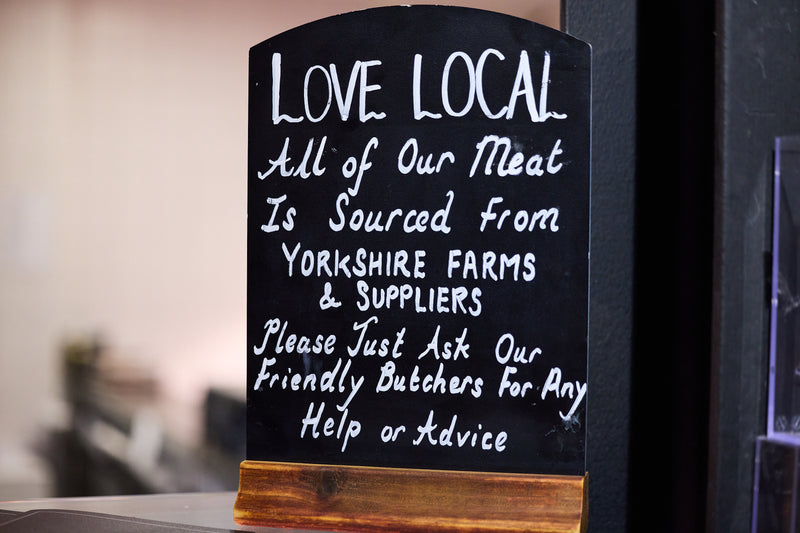 LOVE LOCAL
All of Our Meat
Is Sourced from
YORKSHIRE FARMS
& SUPPLIERS
Please Just Ask Our
Friendly Butchers For Any
Help or Advice